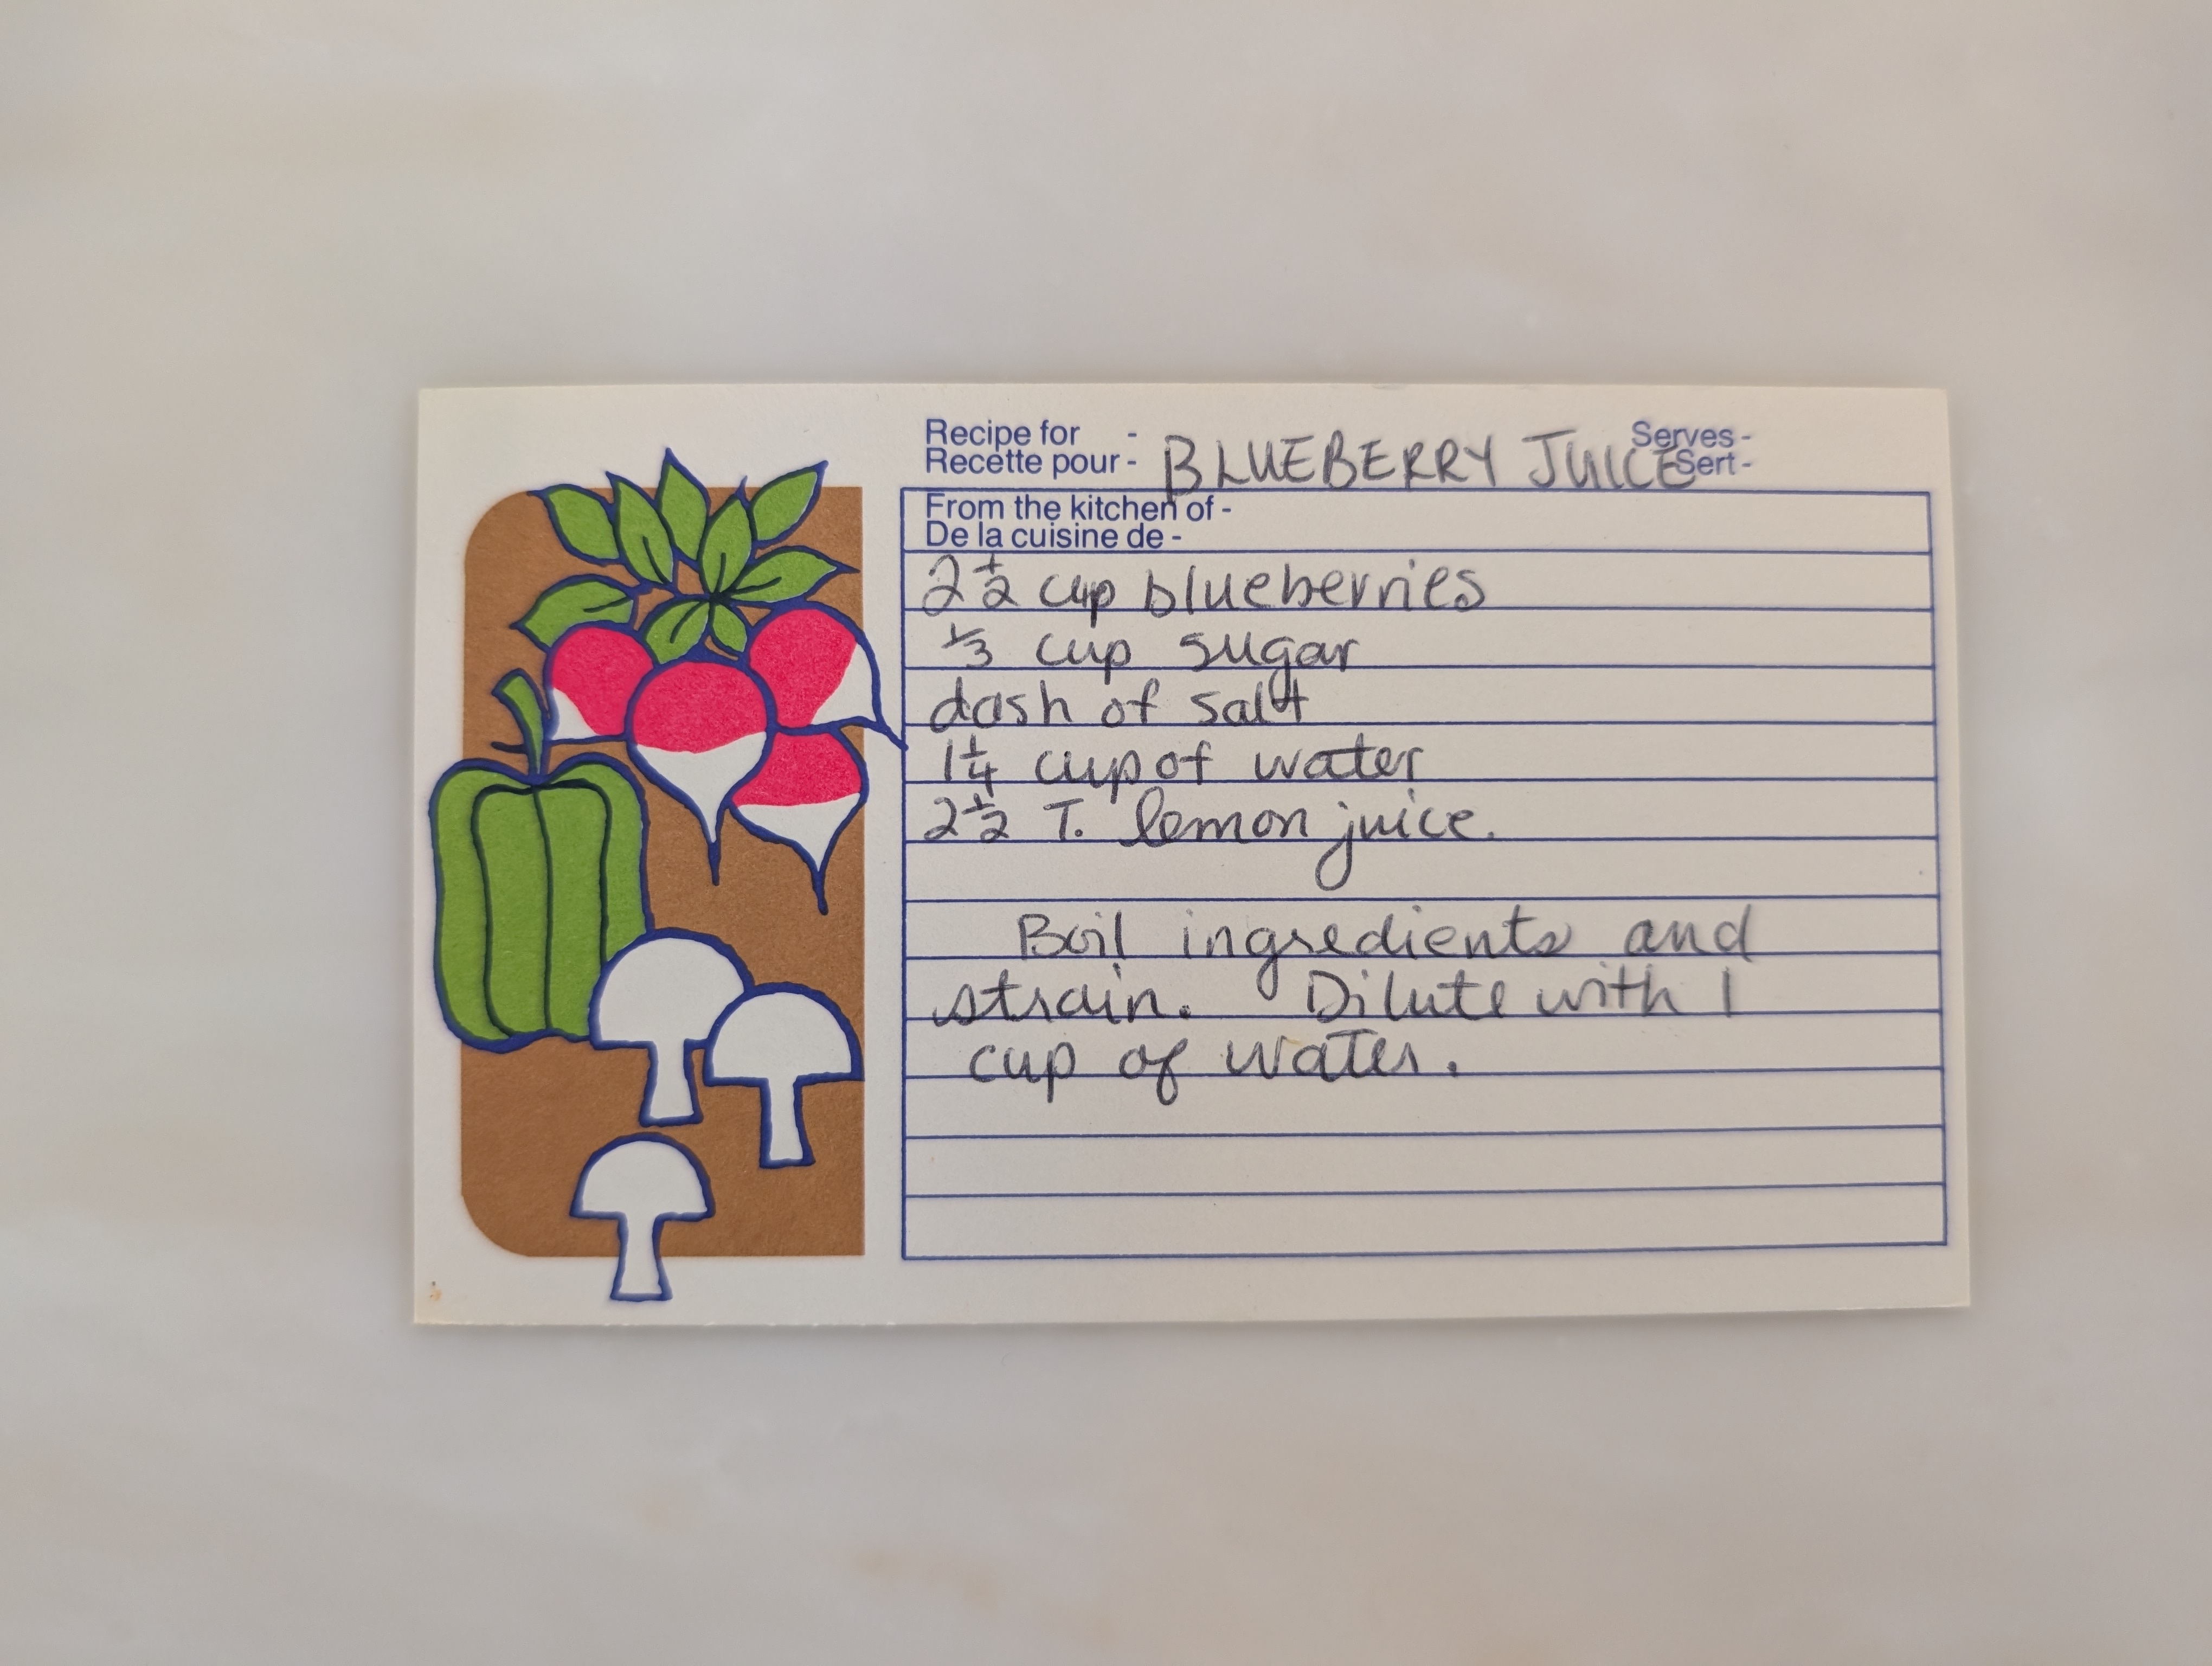 Recipe for - BLUEBERRY JUICE Serves -
Recette pour - Sert -
From the kitchen of -
De la cuisine de -
2 1/2 cup blueberries
1/3 cup sugar
dash of salt
1 1/4 cup of water
2 1/2 T. lemon juice.
Boil ingredients and
strain. Dilute with 1
cup of water.